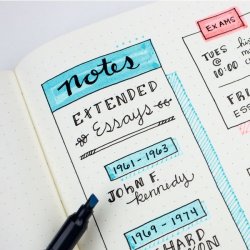 Notes
EXTENDED
Essays
1961-1963
JOHN F.
Kennedy
1969-1974
EXAMS
TUES
@
10:00
FRI
ESS